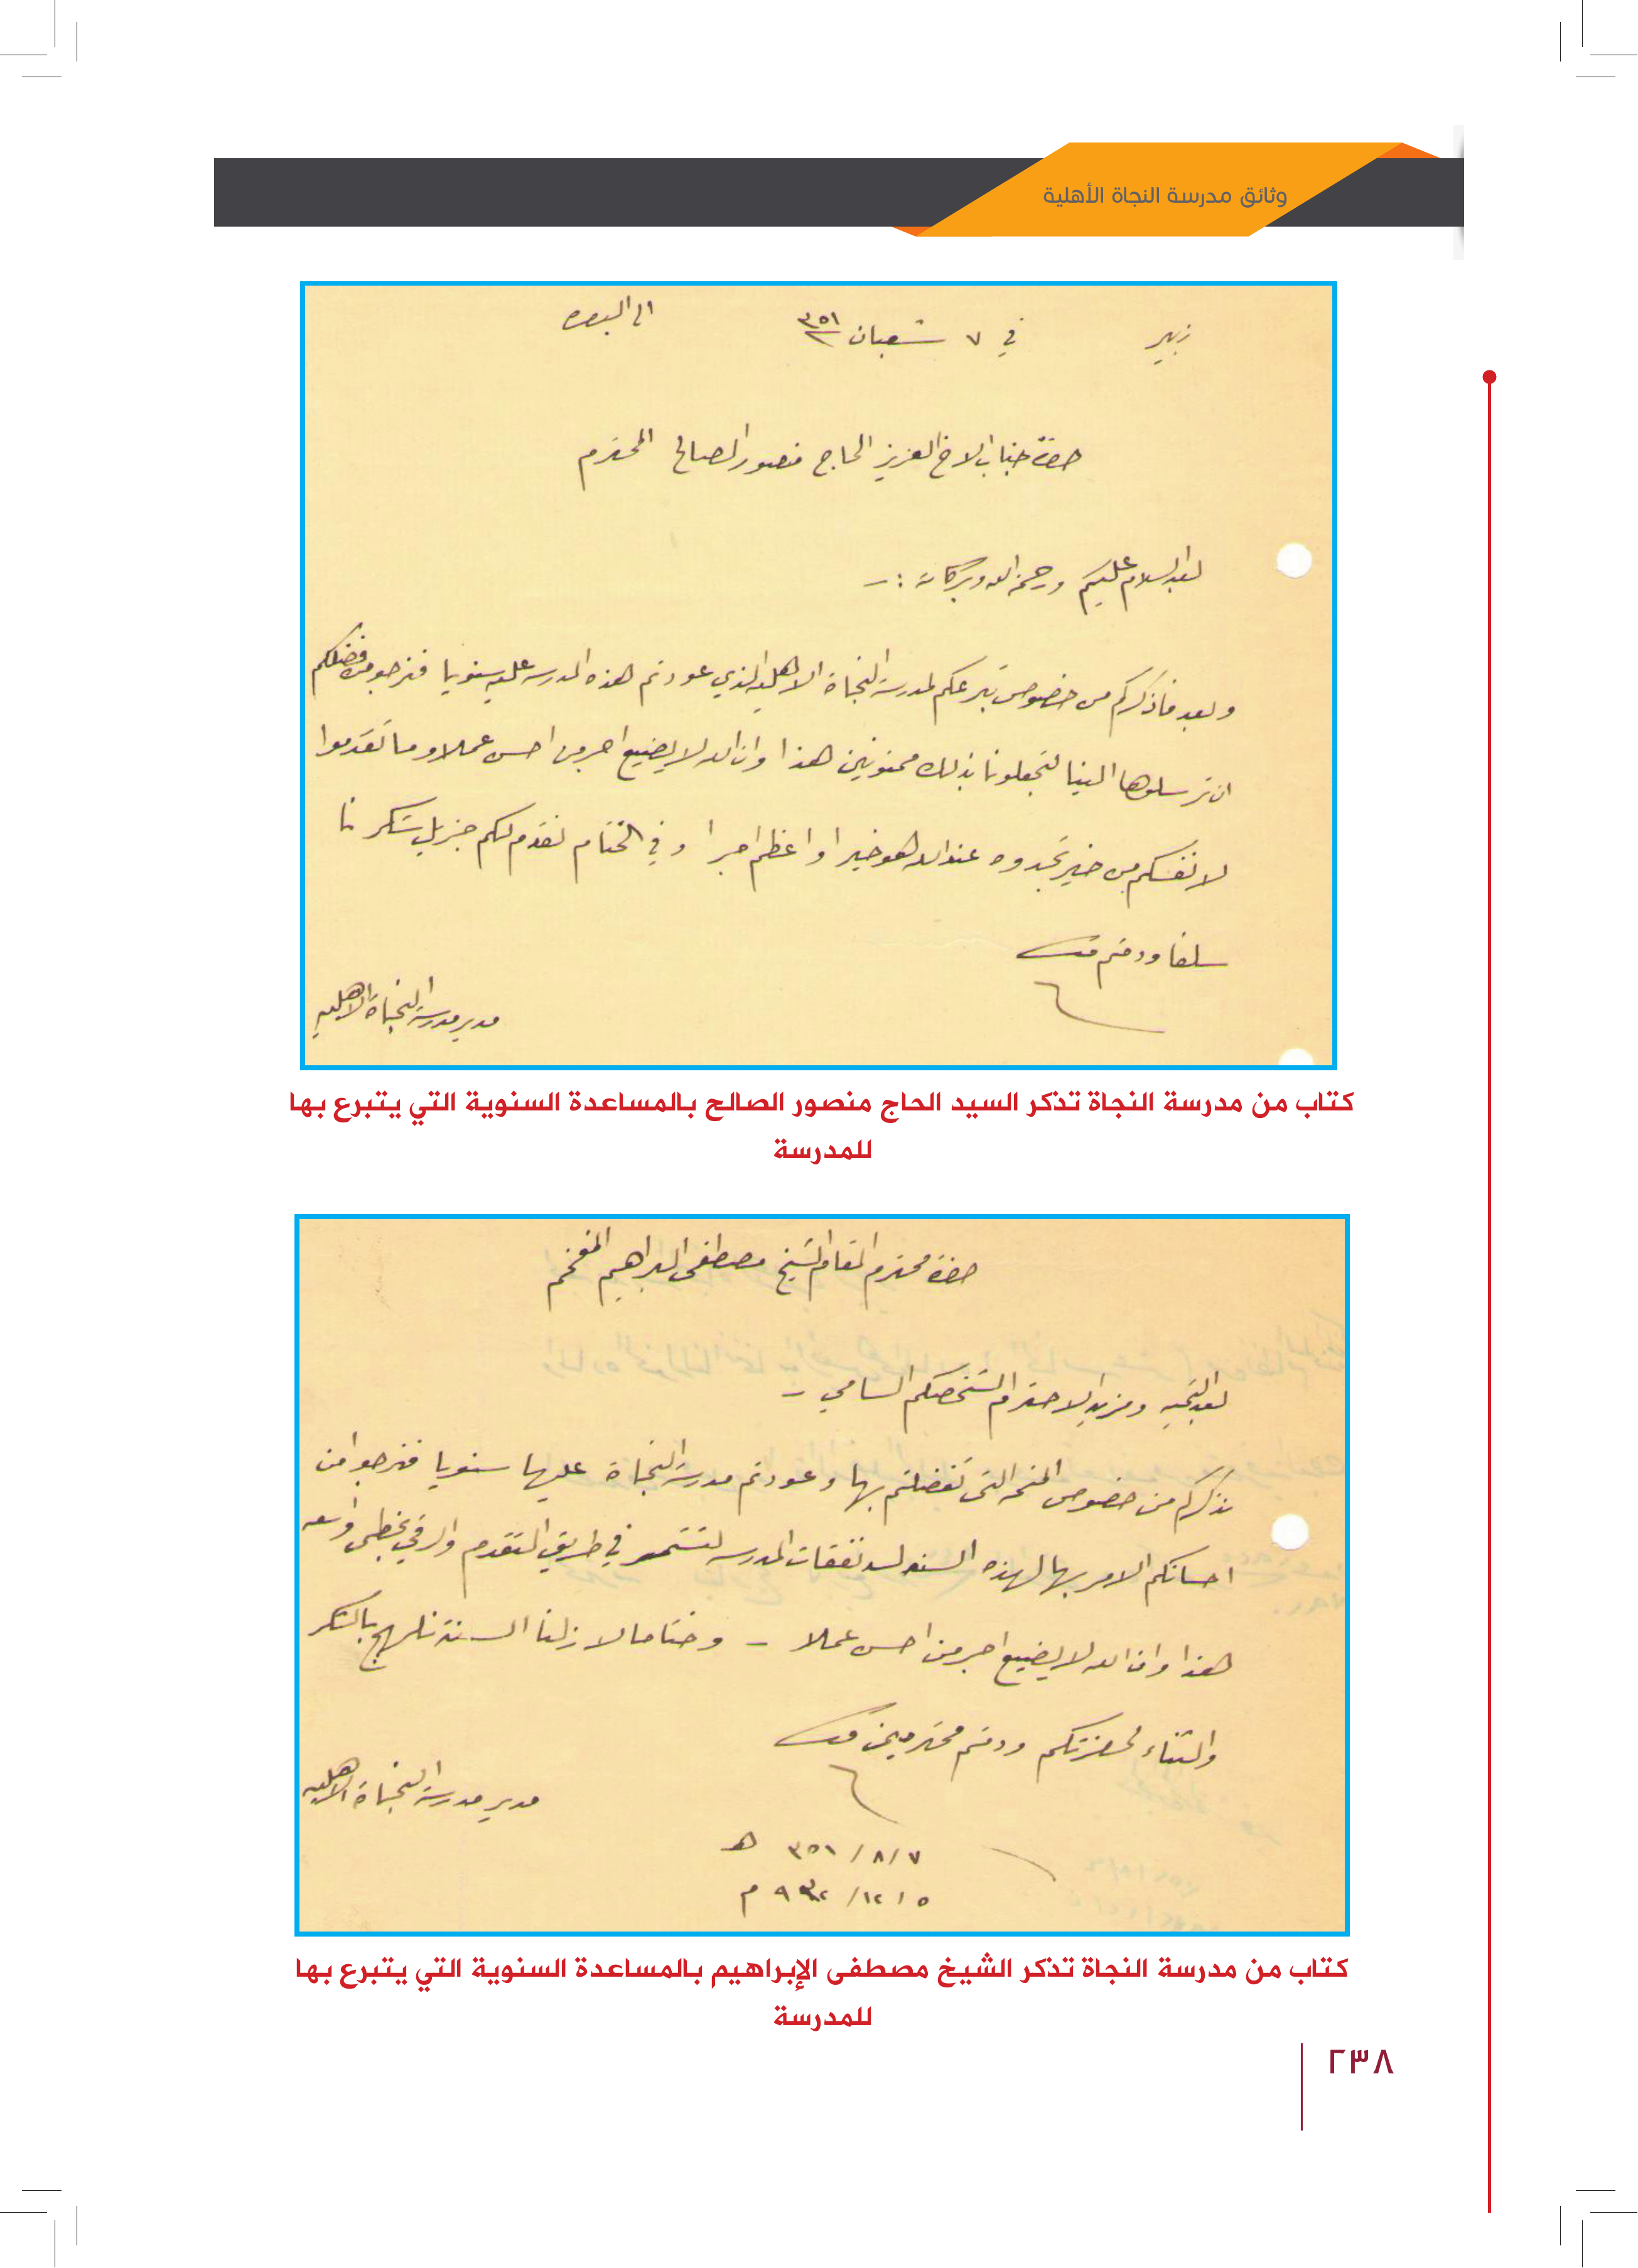 وثائق مدرسة النجاة الأهلية
زبير في ٧ شعبان ٣٥١ الى البصره
حضرة جناب الاخ العزيز الحاج منصور الصالح المحترم
بعد السلام عليكم ورحمة الله وبركاته :ـ
وبعد فأذكركم من خصوص تبرعكم لمدرسة النجاة الاهليه الذي عودتم هذه المدرسه عليه سنويا فنرجو من فضلكم
ان ترسلوها الينا لتجعلونا بذلك ممنونين هذا وان الله لا يضيع اجر من احسن عملا وما تقدموا
لانفسكم من خير تجدوه عند الله هو خيرا واعظم اجرا وفي الختام نقدم لكم جزيل شكرنا
سلفا ودمتم
مدير مدرسة النجاة الاهليه
كتاب من مدرسة النجاة تذكر السيد الحاج منصور الصالح بالمساعدة السنوية التي يتبرع بها
للمدرسة
حضرة محترم المقام الشيخ مصطفى البراهيم المفخم
بعد التحيه ومزيد الاحترام لشخصكم السامي ـ
نذكركم من خصوص المنحه التي تفضلتم بها وعودتم مدرسة النجاة عليها سنويا فنرجوا من
احسانكم الامر بها لهذه السنه لسد نفقات المدرسه لتستمر في طريق التقدم والرقي بخطى واسعه
هذا وان الله لا يضيع اجر من احسن عملا ـ وختاما لا زلنا السنة نلهج بالشكر
والثناء لحضرتكم ودمتم محترمين
مدير مدرسة النجاة الاهليه
٣٥١/٨/٧ هـ
٩٣٢/١٢/٥ م
كتاب من مدرسة النجاة تذكر الشيخ مصطفى الإبراهيم بالمساعدة السنوية التي يتبرع بها
للمدرسة
٢٣٨